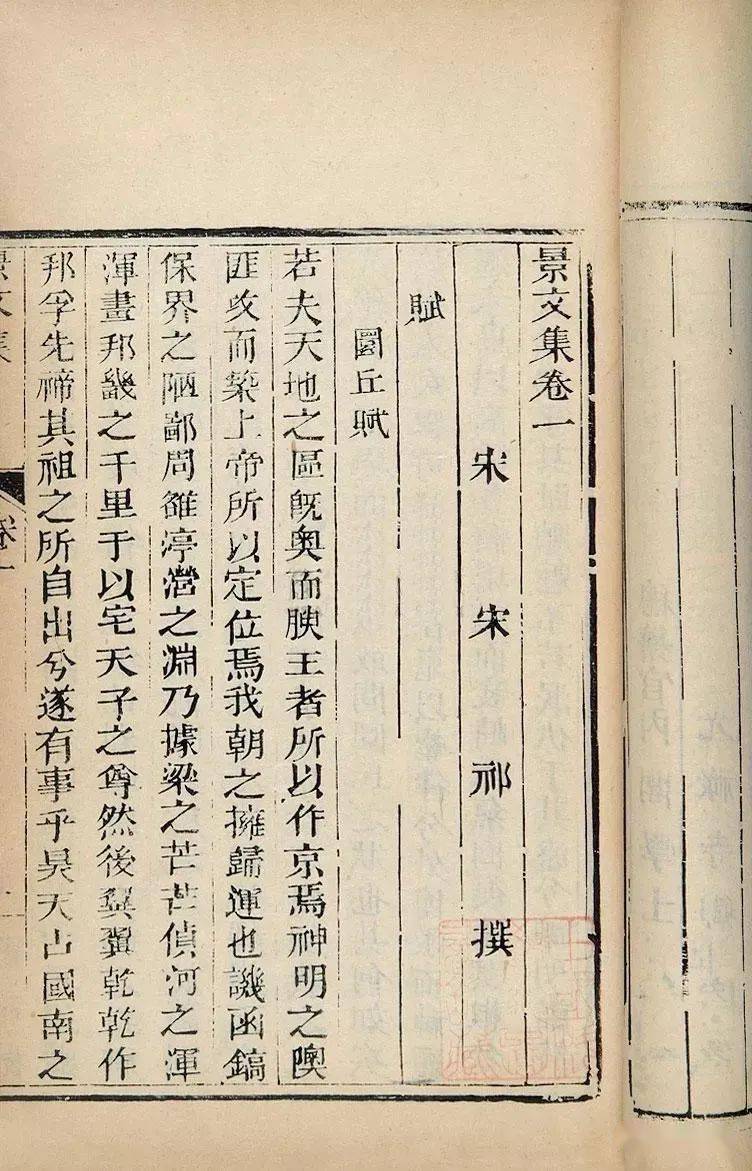 景文集卷一
宋 宋祁 撰
賦
圜丘賦
若夫天地之區既奧而腴王者所以作京焉神明之隩
匪攻而築上帝所以定位焉我朝之擁歸運也譏函鎬
保界之陋鄙周雒渟瀯之淵乃據梁之芒芒偵河之渾
渾畫邦畿之千里于以宅天子之尊然後翼翼乾乾作
邦孚先禘其祖之所自出兮遂有事乎昊天占國南之
景文集
卷一